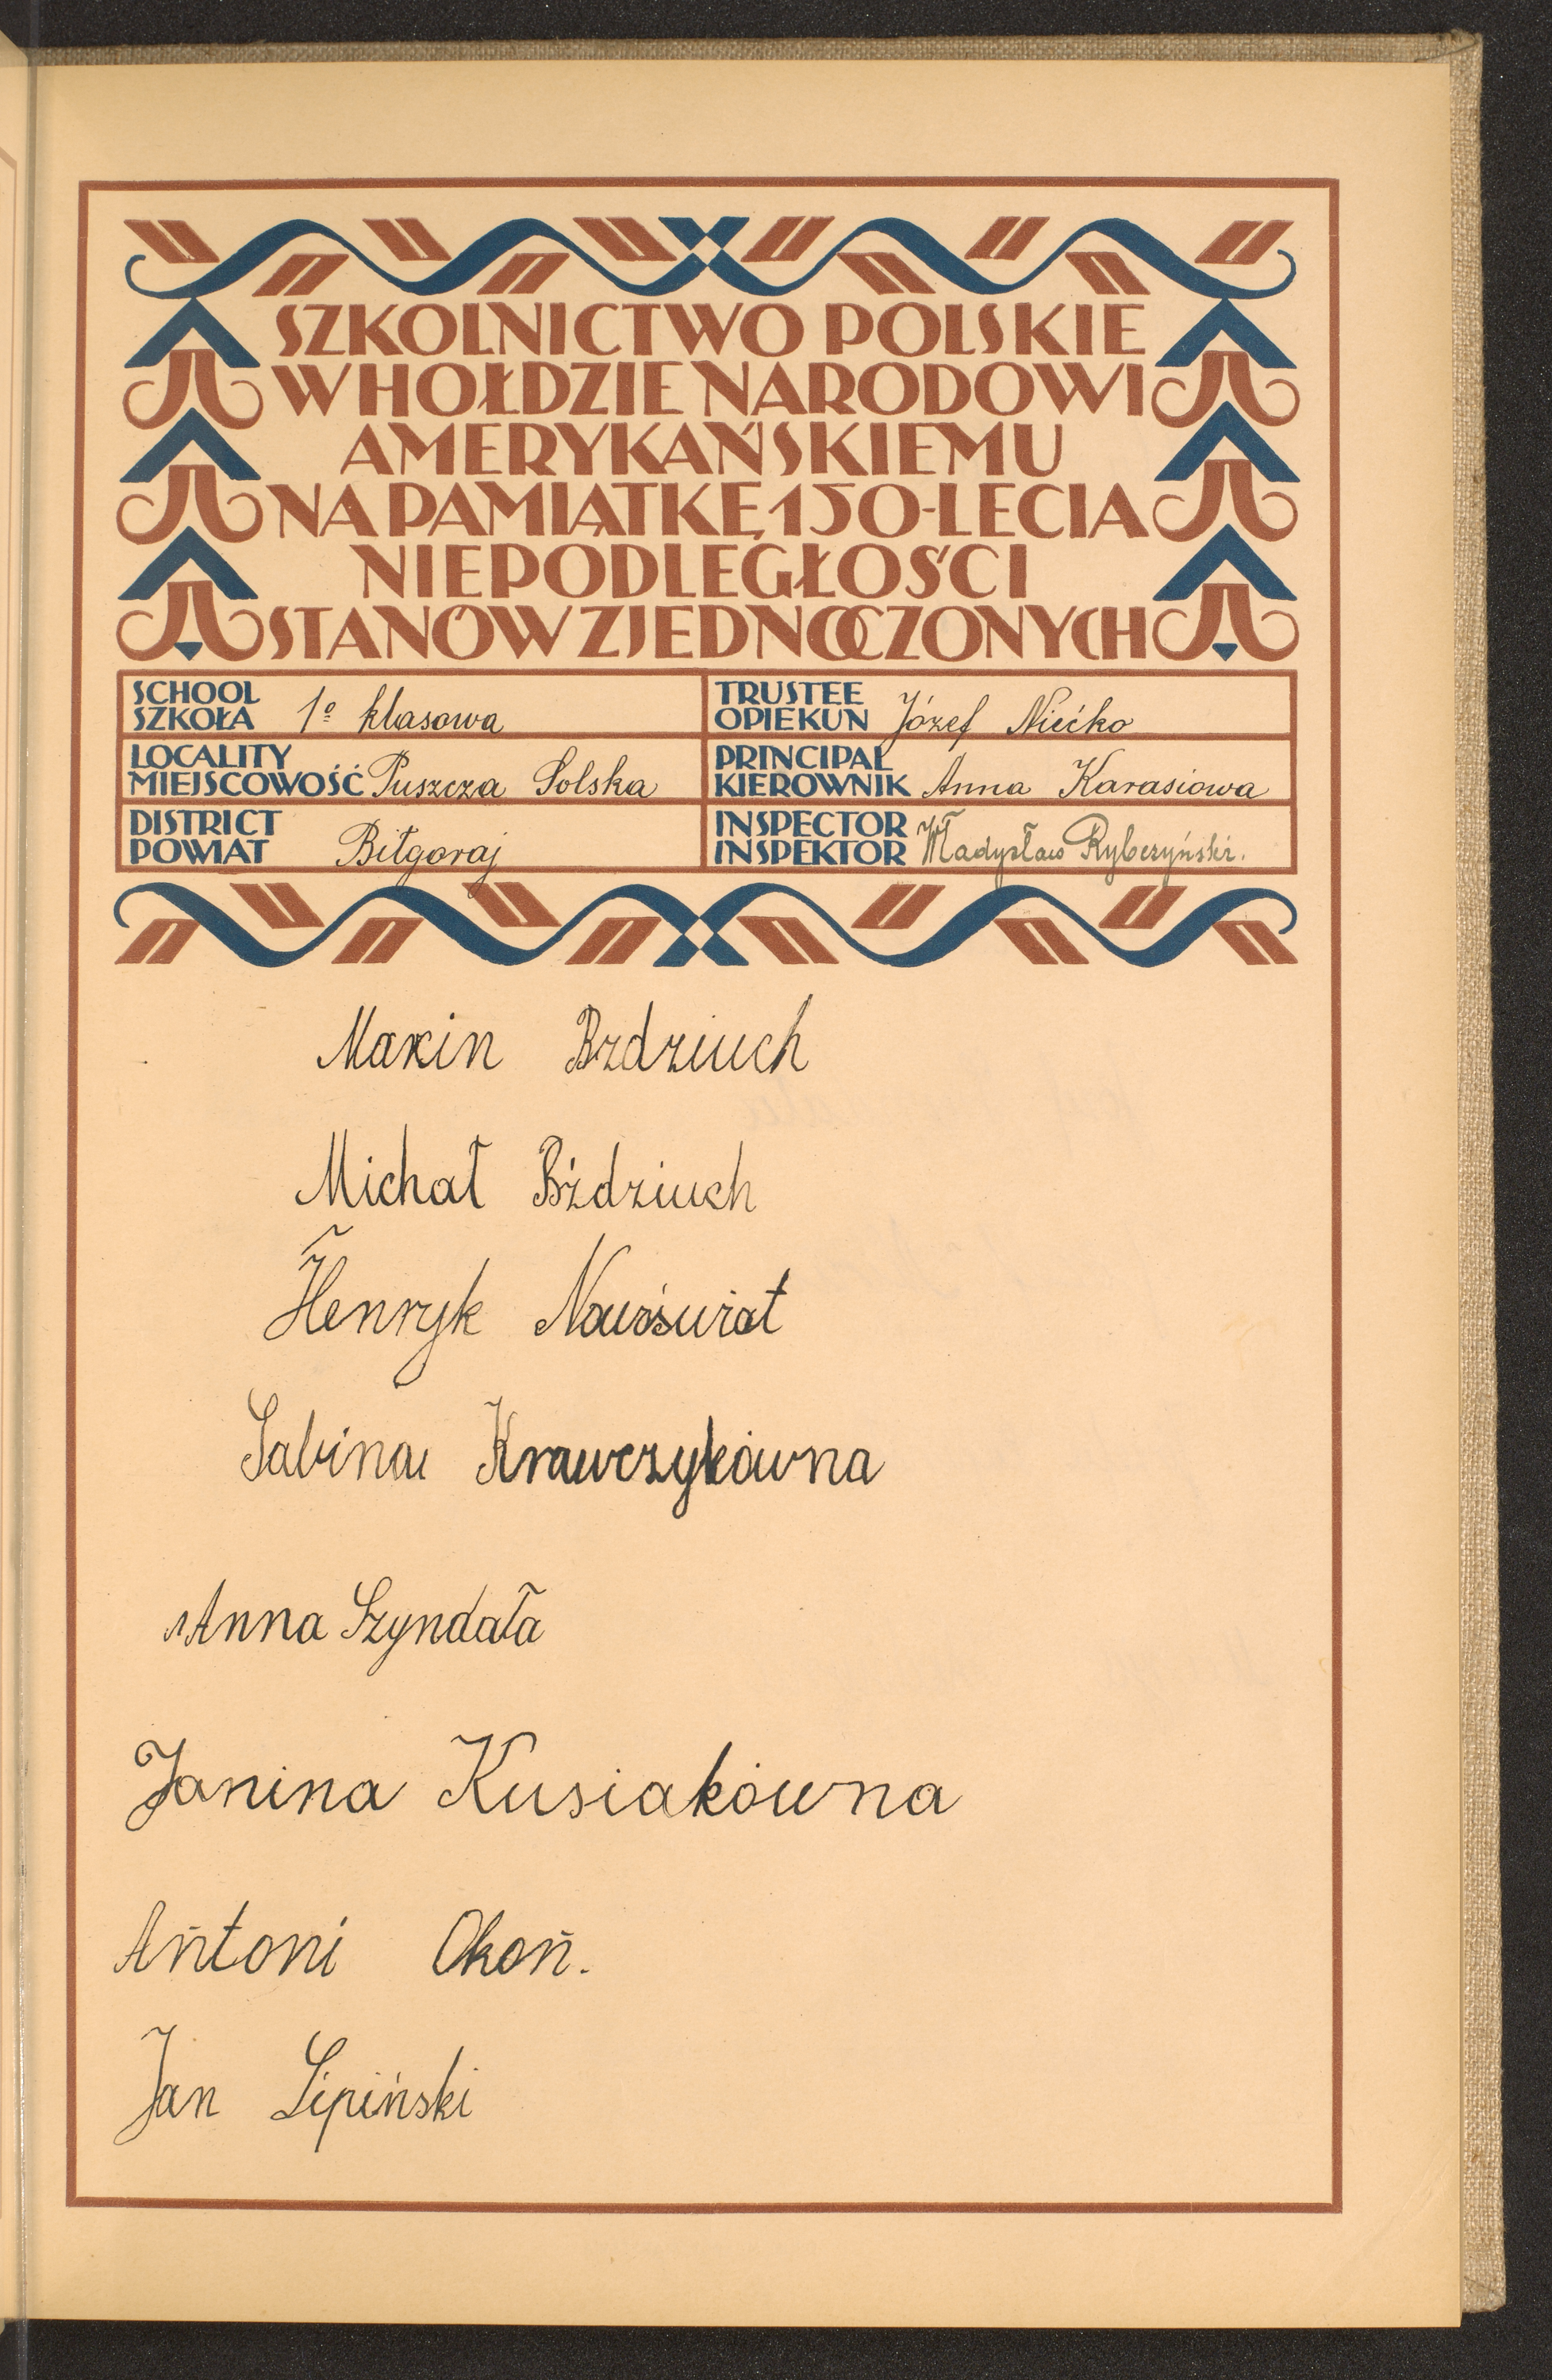 SZKOLNICTWO POLSKIE
W HOŁDZIE NARODOWI
AMERYKAŃSKIEMU
NA PAMIĄTKĘ 150-LECIA
NIEPODLEGŁOŚCI
STANÓW ZJEDNOCZONYCH
SCHOOL
SZKOŁA 1º klasowa
TRUSTEE
OPIEKUN Józef Niećko
LOCALITY
MIEJSCOWOŚĆ Puszcza Solska
PRINCIPAL
KIEROWNIK Anna Karasiowa
DISTRICT
POWIAT Biłgoraj
INSPECTOR
INSPEKTOR Władysław Rybczyński.
Marcin Bździuch
Michał Bździuch
Henryk Nowóświat
Sabina Krawczykówna
Anna Szyndała
Janina Kusiakówna
Antoni Okoń.
Jan Lipiński